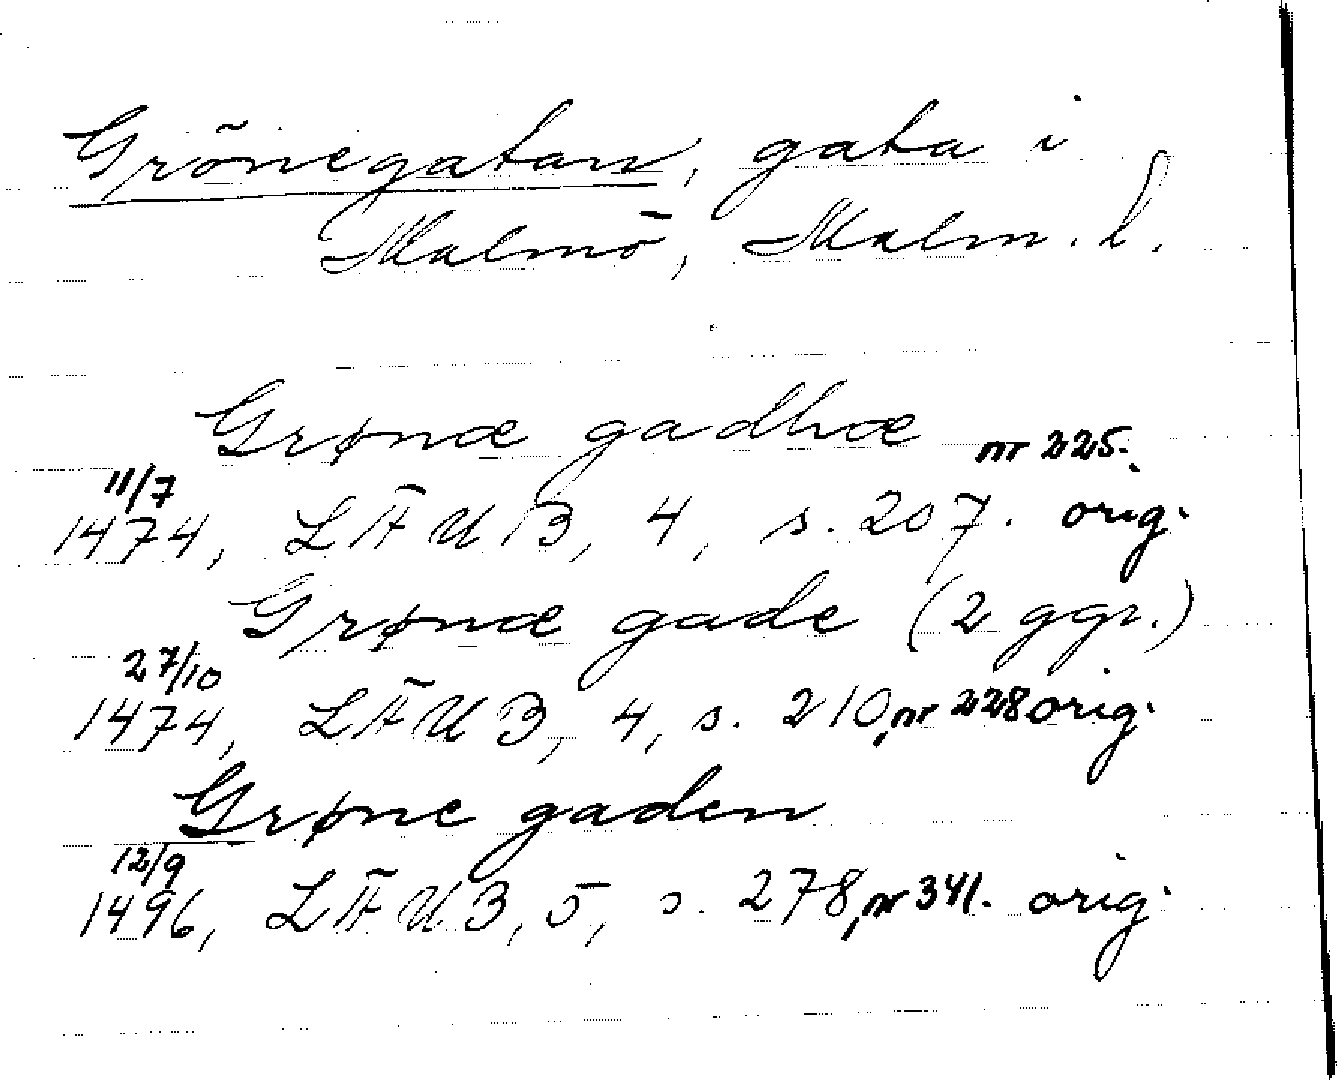 Grönegatan, gata i
Malmö, Malm. l.
Grønæ gadhæ nr 225.
11/7
1474, LÄUB, 4, s. 207. orig.
Grønæ gade (2 ggr.)
27/10
1474, LÄUB, 4, s. 210, nr 228 orig.
Grøne gaden
12/9
1496, LÄUB, 5, s. 278, nr 341. orig.